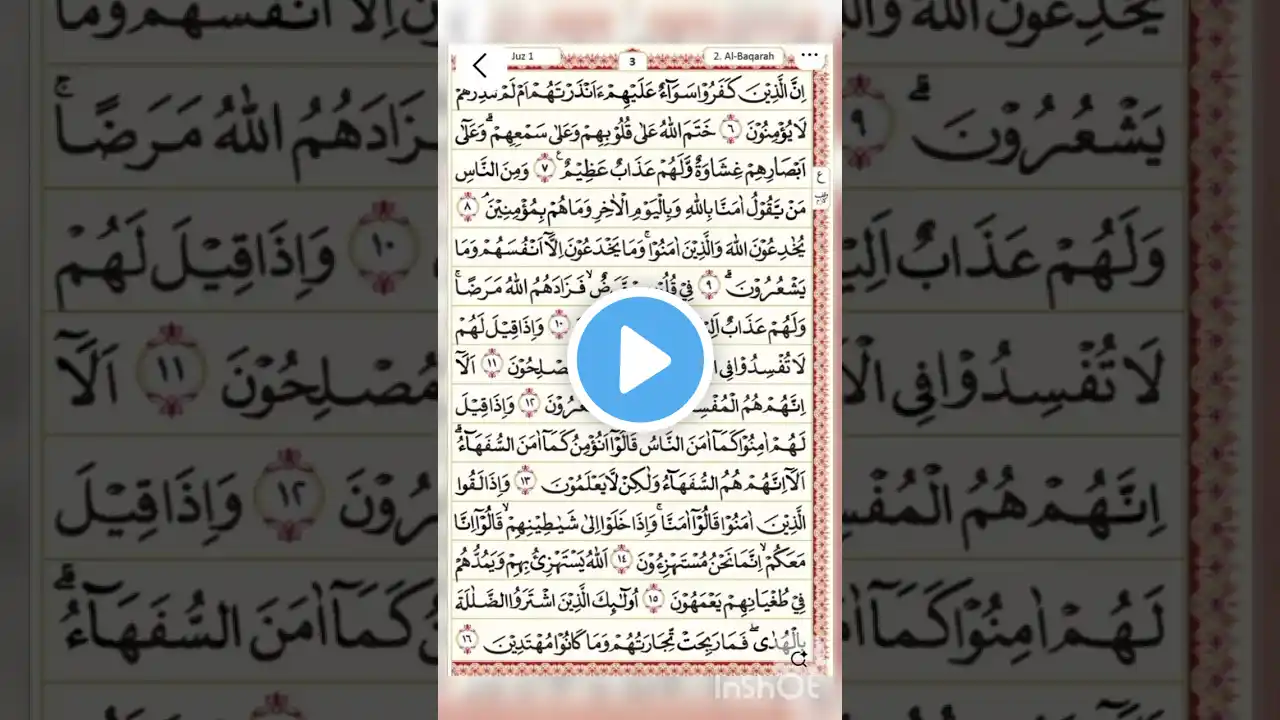 Juz 1
3
2. Al-Baqarah
اِنَّ الَّذِيْنَ كَفَرُوْا سَوَآءٌ عَلَيْهِمْ ءَاَنْذَرْتَهُمْ اَمْ لَمْ تُنْذِرْهُمْ
لَا يُؤْمِنُوْنَ ٦ خَتَمَ اللّٰهُ عَلٰى قُلُوْبِهِمْ وَعَلٰى سَمْعِهِمْ ۗ وَعَلٰٓى
اَبْصَارِهِمْ غِشَاوَةٌ وَّلَهُمْ عَذَابٌ عَظِيْمٌ ٧ وَمِنَ النَّاسِ
مَنْ يَّقُوْلُ اٰمَنَّا بِاللّٰهِ وَبِالْيَوْمِ الْاٰخِرِ وَمَا هُمْ بِمُؤْمِنِيْنَ ۘ ٨
يُخٰدِعُوْنَ اللّٰهَ وَالَّذِيْنَ اٰمَنُوْا ۚ وَمَا يَخْدَعُوْنَ اِلَّآ اَنْفُسَهُمْ وَمَا
يَشْعُرُوْنَ ۗ ٩ فِيْ مَّرَضٌ ۙ فَزَادَهُمُ اللّٰهُ مَرَضًا ۚ
وَلَهُمْ عَذَابٌ ١٠ وَاِذَا قِيْلَ لَهُمْ
لَا تُفْسِدُوْا فِى مُصْلِحُوْنَ ١١ اَلَآ
اِنَّهُمْ هُمُ الْمُفْسِدُ ١٢ وَاِذَا قِيْلَ
لَهُمْ اٰمِنُوْا كَمَآ اٰمَنَ النَّاسُ قَالُوْٓا اَنُؤْمِنُ كَمَآ اٰمَنَ السُّفَهَاۤءُ ۗ
اَلَآ اِنَّهُمْ هُمُ السُّفَهَاۤءُ وَلٰكِنْ لَّا يَعْلَمُوْنَ ١٣ وَاِذَا لَقُوا
الَّذِيْنَ اٰمَنُوْا قَالُوْٓا اٰمَنَّا ۚ وَاِذَا خَلَوْا اِلٰى شَيٰطِيْنِهِمْ ۙ قَالُوْٓا اِنَّا
مَعَكُمْ ۙ اِنَّمَا نَحْنُ مُسْتَهْزِءُوْنَ ١٤ اَللّٰهُ يَسْتَهْزِئُ بِهِمْ وَيَمُدُّهُمْ
فِيْ طُغْيَانِهِمْ يَعْمَهُوْنَ ١٥ اُولٰۤىِٕكَ الَّذِيْنَ اشْتَرَوُا الضَّلٰلَةَ
بِالْهُدٰى ۖ فَمَا رَبِحَتْ تِّجَارَتُهُمْ وَمَا كَانُوْا مُهْتَدِيْنَ ١٦
InShOt